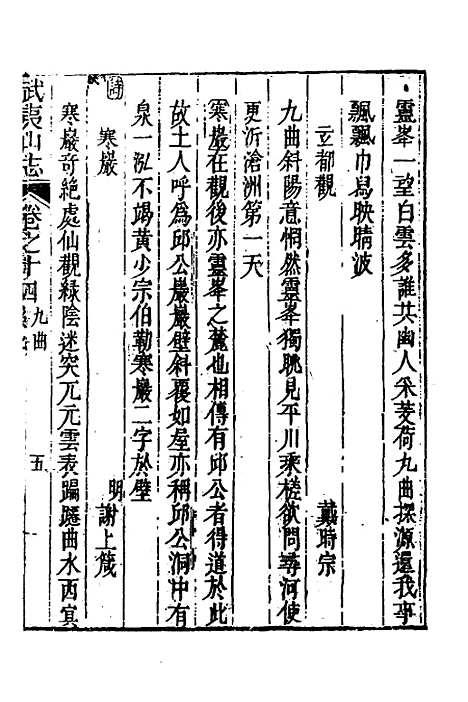 靈峯一望白雲多誰共幽人采芰荷九曲探源還我事
飄飄巾舄映晴波
玄都觀 戴時宗
九曲斜陽意惘然靈峯獨眺見平川乘槎欲問尋河使
更泝滄洲第一天
寒巖在觀後亦靈峯之麓也相傳有邱公者得道於此
故土人呼爲邱公巖巖壁斜覆如屋亦稱邱公洞中有
泉一泓不竭黃少宗伯勒寒巖二字於壁
詩 寒巖 明 謝上箴
寒巖奇絶處仙觀緑陰迷突兀元雲表躋躔曲水西寘
武夷山志 卷之十四 九曲 五